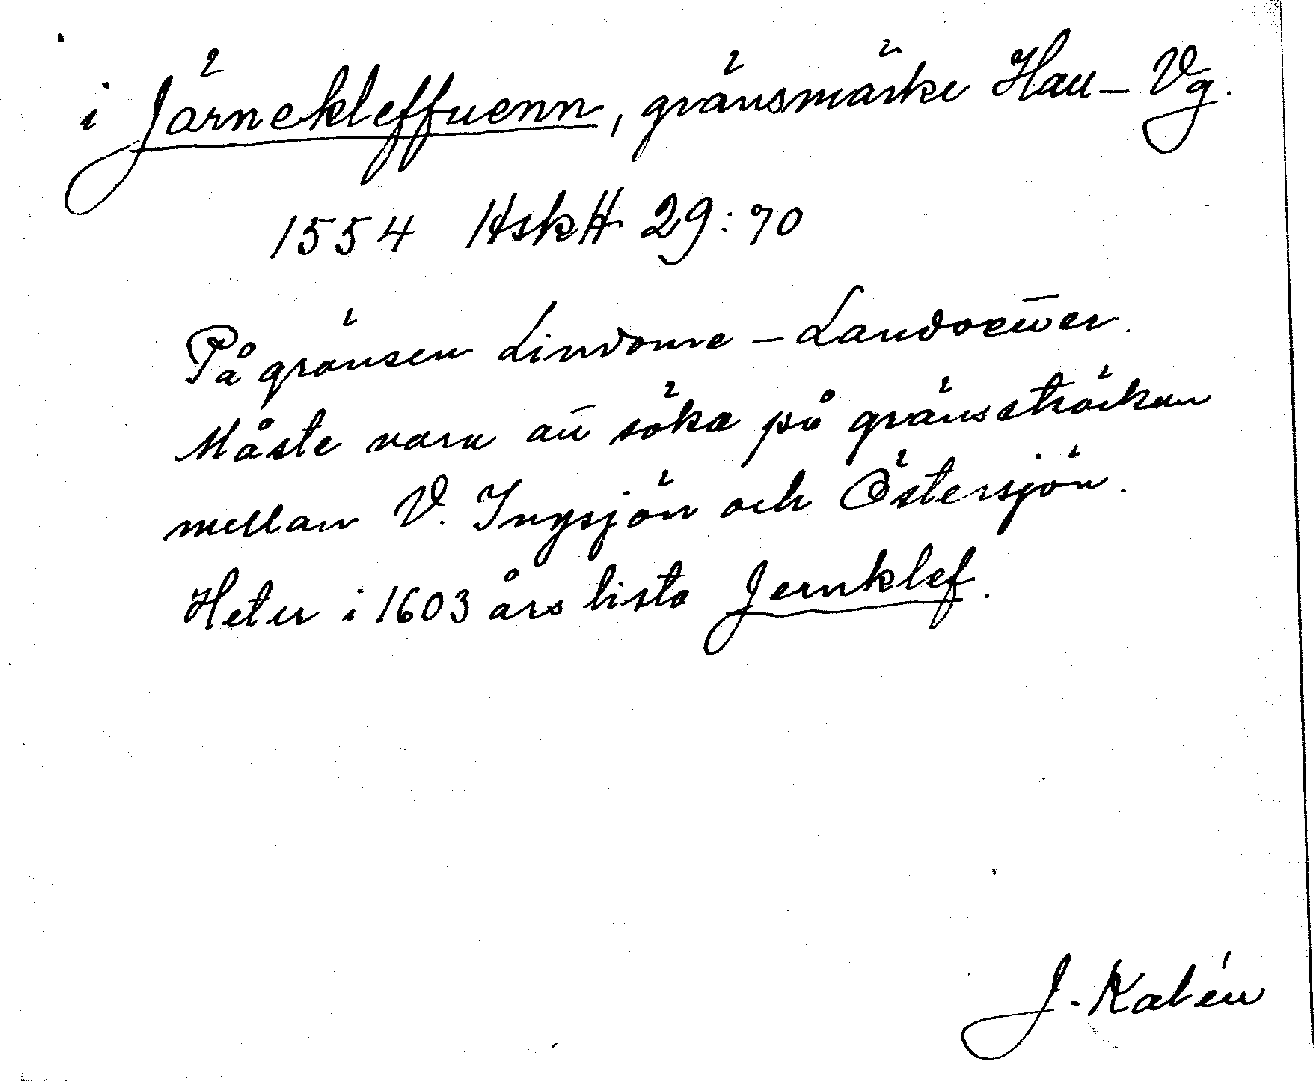 i Järnekleffuenn, gränsmärke Hall – Vg.
1554 HskH 29:70
På gränsen Lindome – Landvetter.
Måste vara att söka på gränssträckan
mellan V. Ingsjön och Östersjön.
Heter i 1603 års lista Jernklef.
J. Kalén